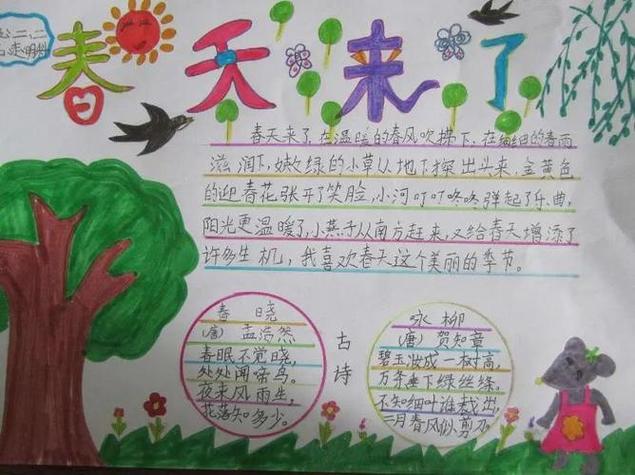 春天来了
春天来了,在温暖的春风吹拂下,在细细的春雨
滋润下,嫩绿的小草从地下探出头来,金黄色
的迎春花张开了笑脸,小河叮叮咚咚弹起了乐曲,
阳光更温暖了,小燕子从南方赶来,又给春天增添了
许多生机,我喜欢春天这个美丽的季节。
春 晓
(唐) 孟浩然
春眠不觉晓,
处处闻啼鸟。
夜来风雨生,
花落知多少。
古诗
咏柳
(唐) 贺知章
碧玉妆成一树高,
万条垂下绿丝绦,
不知细叶谁裁出,
二月春风似剪刀。